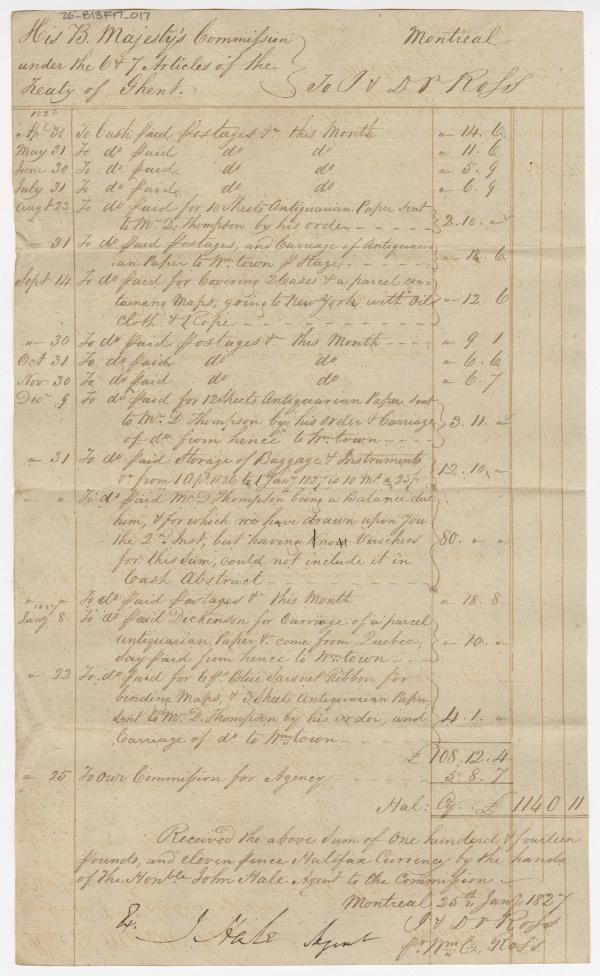 26-B13F17_017
His B. Majesty's Commission
under the 6 & 7 Articles of the
Treaty of Ghent.
Montreal
To J & D P Ross
1826
Apl 30 To Cash paid postages &c this Month " 14. 6
May 31 To do paid do do " 11. 6
June 30 To do paid do do " 5. 9
July 31 To do paid do do " 6. 9
Augt 23 To do paid for 10 Sheets Antiquarian Paper sent
to Mr D. Thompson by his order 2. 10. "
" 31 To do paid postages, and Carriage of Antiquari-
an Paper to Wm town & Stage " 18. 6
Sept 14 To do paid for Covering 2 Cases & a parcel con-
taining Maps, going to New York with Oil " 12. 6
Cloth & Rope
" 30 To do paid postages &c this Month " 9. 1
Oct 31 To do paid do do " 6. 6
Nov. 30 To do paid do do " 6. 7
Decr 9 To do paid for 12 Sheets Antiquarian Paper sent
to Mr. D Thompson by his order & Carriage 3. 11. "
of do from hence to Wm town
" 31 To do paid Storage of Baggage & Instruments
&c from 1 Apl 1826 to 1st Jany 1827 is 10 Ms @ 25/ 12. 10. "
" " To do paid Mr D Thompson being a Balance due
him, & for which we have drawn upon You
the 2nd Inst, but having no Vouchers 80. " "
for this Sum, could not include it in
Cash Abstract
" " To do paid postages &c this Month " 18. 8
1827
Jany 8 To do paid Dickinson for Carriage of a parcel
Antiquarian Paper &c come from Quebec, " 10. "
Say paid from hence to Wm town
" 22 To do paid for 6 ps Blue Sarsnet Ribbon for
binding Maps, & 3 Sheets Antiquarian Paper,
sent to Mr D. Thompson by his order, and 4. 1. "
Carriage of do to Wm town
£ 108. 12. 4
" 25 To our Commission for Agency 5. 8. 7
Hal: Cy. £ 114 0 11
Received the above Sum of One hundred & fourteen
pounds, and eleven pence Halifax Currency by the hands
of The Honble John Hale Agent to the Commission
Montreal 25th Jany 1827
J & D P Ross
pr Wm C. Ross
Ex. J Hale Agent